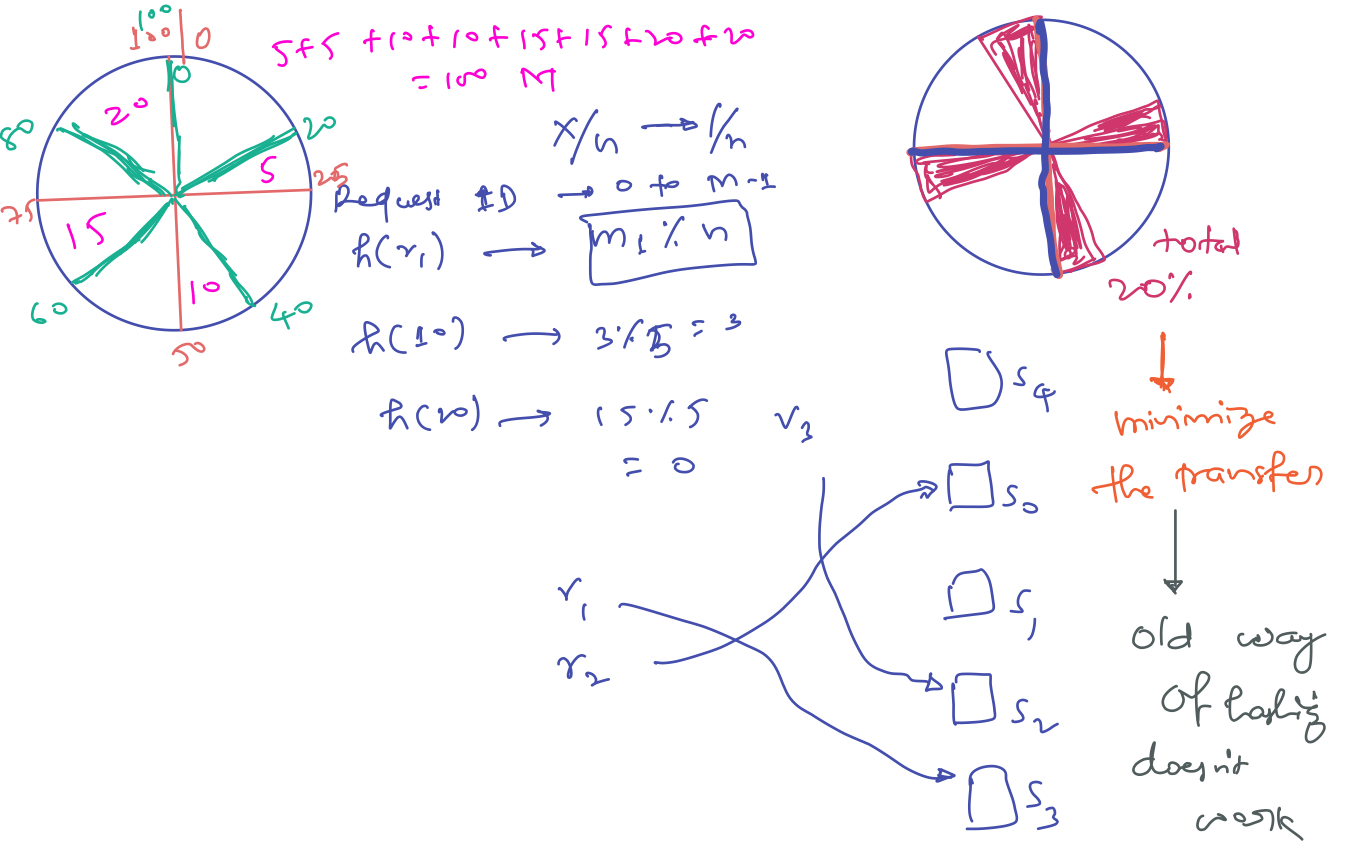 100
100 0
0
20
80
20
5
25
75
15
10
60
40
50
5+5 +10+10+15+15+20+20
= 100 M
x/n → 1/n
Request ID → 0 to M-1
h(r₁) → m₁ % n
h(10) → 3 % 5 = 3
h(20) → 15 % 5
= 0
r₃
r₁
r₂
S₄
S₀
S₁
S₂
S₃
total
20%
minimize
the transfer
old way
of hashing
doesn't
work